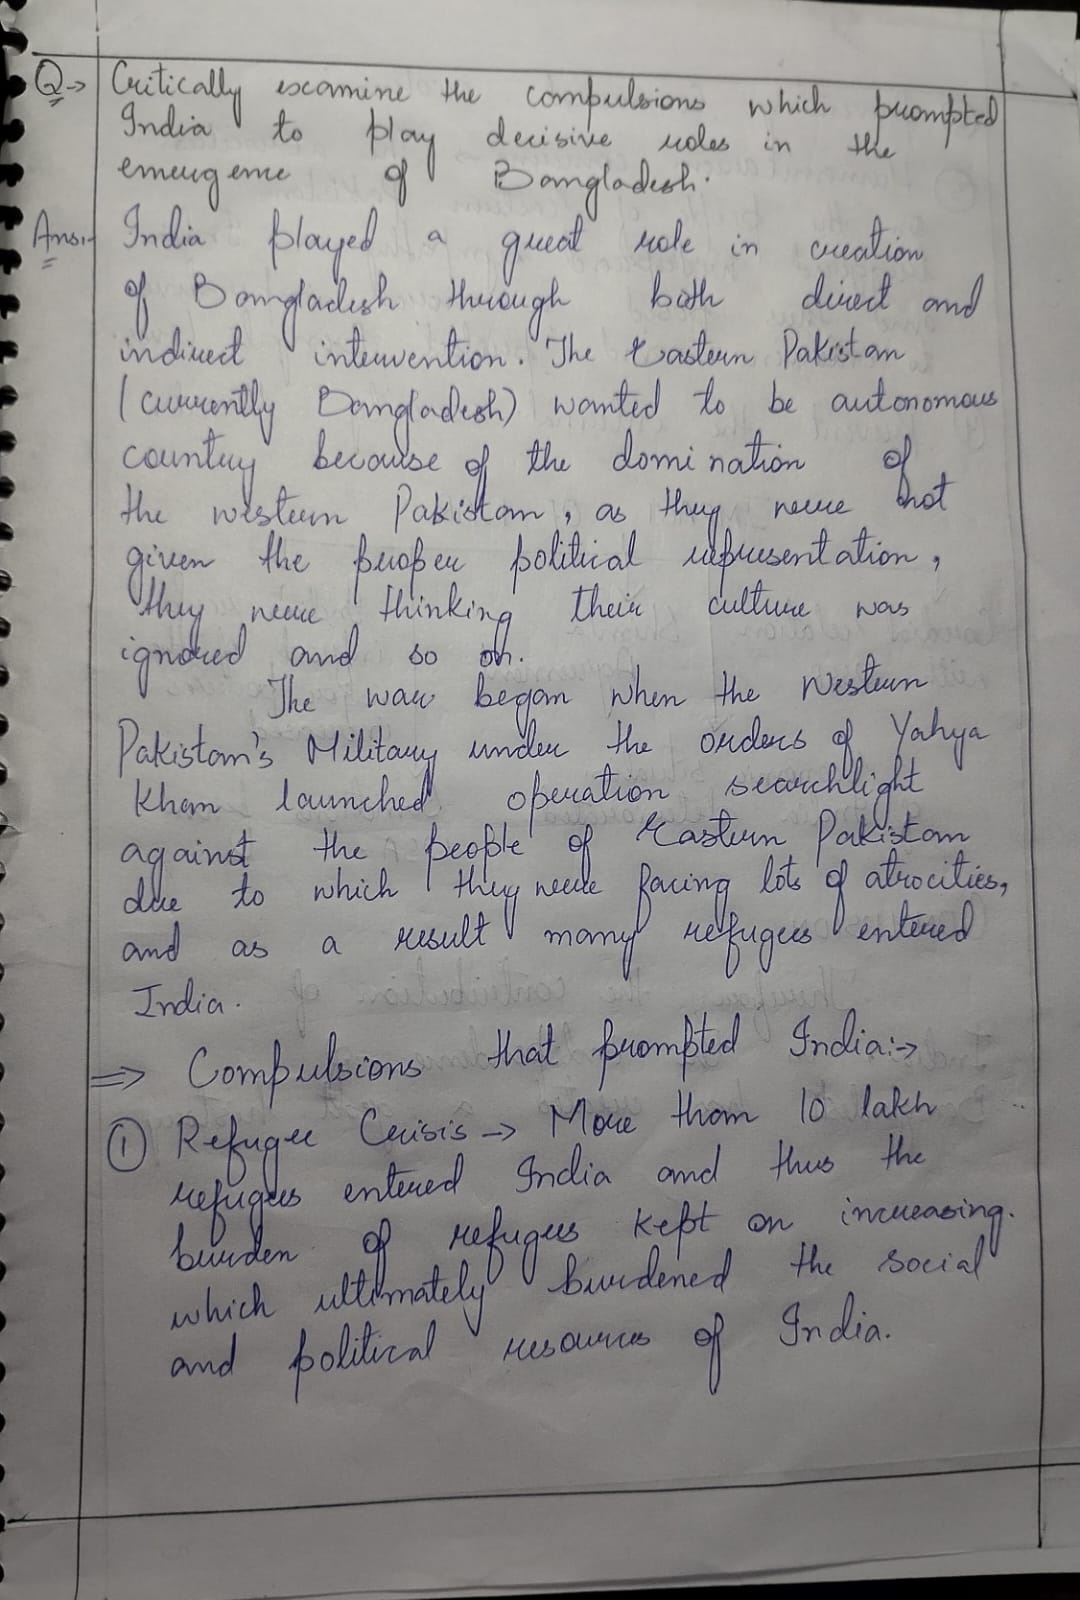 Q→ Critically examine the compulsions which prompted
India to play decisive roles in the
emergence of Bangladesh.
Ans:- India played a great role in creation
of Bangladesh through both direct and
indirect intervention. The Eastern Pakistan
(currently Bangladesh) wanted to be autonomous
country because of the domination of
the western Pakistan, as they were not
given the proper political representation,
they were thinking their culture was
ignored and so on.
The war began when the Western
Pakistan's Military under the orders of Yahya
Khan launched operation searchlight
against the people of Eastern Pakistan
due to which they were facing lots of atrocities,
and as a result many refugees entered
India.
⇒ Compulsions that prompted India:→
① Refugee Crisis → More than 10 lakh
refugees entered India and thus the
burden of refugees kept on increasing.
which ultimately burdened the social
and political resources of India.